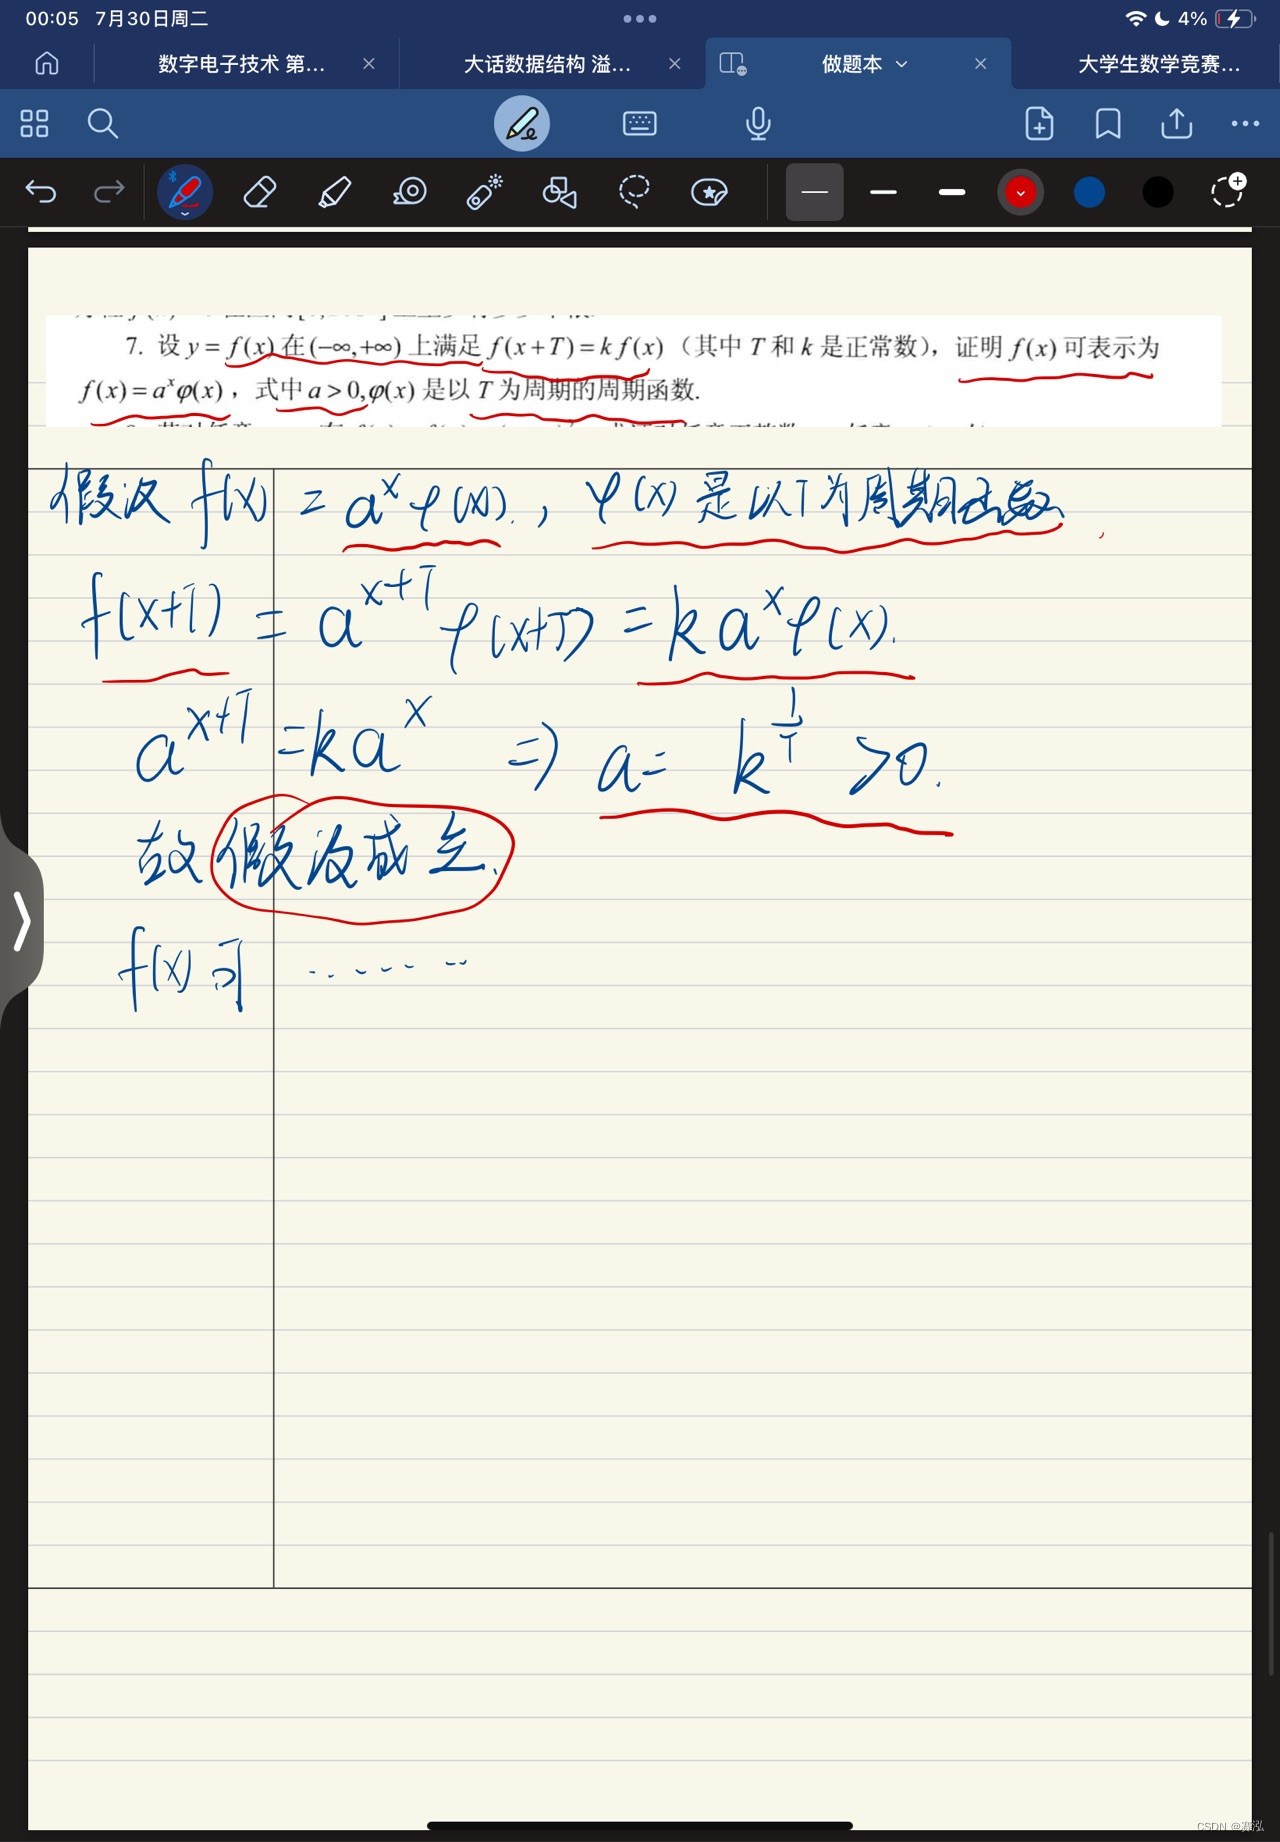 00:05 7月30日周二
4%
数字电子技术 第... 大话数据结构 溢... 做题本 大学生数学竞赛...
7. 设 y = f(x) 在 (−∞,+∞) 上满足 f(x+T) = k f(x)（其中 T 和 k 是正常数），证明 f(x) 可表示为
f(x) = aˣφ(x)，式中 a > 0, φ(x) 是以 T 为周期的周期函数.
假设 f(x) = aˣφ(x)., φ(x) 是以T为周期函数.
f(x+T) = a^{x+T} φ(x+T) = k aˣ φ(x).
a^{x+T} = k aˣ ⇒ a = k^{1/T} > 0.
故假设成立.
f(x) 可 ......
CSDN @